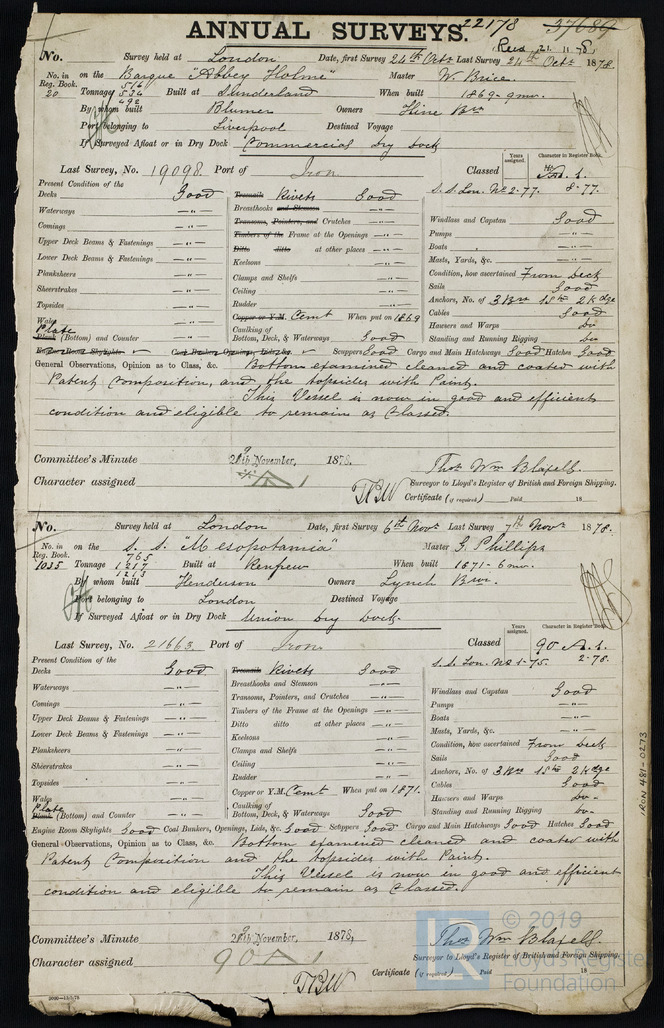 22178 37689
ANNUAL SURVEYS.
Recd 21. 11. 78
No. Survey held at London Date, first Survey 24th Octr Last Survey 24th Octr 1878.
No. in Reg. Book. on the Barque "Abbey Holme" Master W. Brice.
20 Tonnage 516 534 492 Built at Sunderland When built 1869 - 9 mo.
By whom built Blumer Owners Hine Brs
Port belonging to Liverpool Destined Voyage
If Surveyed Afloat or in Dry Dock Commercial Dry Dock
Years assigned. Character in Register Book.
Last Survey, No. 19098. Port of Iron Classed A.1.
S.S. Lon. No 2-77. 8-77.
Present Condition of the
Decks Good Treenails Rivets Good
Waterways —"— Breasthooks and Stemson —"— Windlass and Capstan Good
Comings —"— Transoms, Pointers, and Crutches —"— Pumps —"—
Upper Deck Beams & Fastenings —"— Timbers of the Frame at the Openings —"— Boats —"—
Lower Deck Beams & Fastenings —"— Ditto ditto at other places —"— Masts, Yards, &c. —"—
Planksheers —"— Keelsons —"— Condition, how ascertained From Deck
Sheerstrakes —"— Clamps and Shelfs —"— Sails Good
Topsides —"— Ceiling —"— Anchors, No. of 3 Brs 1 Stm 2 Kdge
Wales —"— Rudder —"— Cables Good
Plate Plank (Bottom) and Counter —"— Copper or Y.M. Cemt When put on 1869 Hawsers and Warps Do
Caulking of Bottom, Deck, & Waterways Good Standing and Running Rigging Do
Engine Room Skylights Coal Bunkers, Openings, Lids, &c. Scuppers Good Cargo and Main Hatchways Good Hatches Good
General Observations, Opinion as to Class, &c. Bottom examined cleaned and coated with
Patent Composition, and the topsides with Paint.
This Vessel is now in good and efficient
condition and eligible to remain as Classed.
Committee's Minute November, 1878.
Character assigned A 1
Thos Wm Blaxell.
Surveyor to Lloyd's Register of British and Foreign Shipping.
Certificate (if required) Paid 18
No. Survey held at London Date, first Survey 6th Novr Last Survey 7th Novr 1878.
No. in Reg. Book. on the S.S. "Mesopotamia" Master G. Phillips
1035 Tonnage 765 1217 1213 Built at Renfrew When built 1871 - 6 mo.
By whom built Henderson Owners Lynch Bros.
Port belonging to London Destined Voyage
If Surveyed Afloat or in Dry Dock Union Dry Dock.
Years assigned. Character in Register Book.
Last Survey, No. 21663. Port of Iron Classed 90 A.1.
S.S. Lon. No 1-75. 2-78.
Present Condition of the
Decks Good Treenails Rivets Good
Waterways —"— Breasthooks and Stemson —"— Windlass and Capstan Good
Comings —"— Transoms, Pointers, and Crutches —"— Pumps —"—
Upper Deck Beams & Fastenings —"— Timbers of the Frame at the Openings —"— Boats —"—
Lower Deck Beams & Fastenings —"— Ditto ditto at other places —"— Masts, Yards, &c. —"—
Planksheers —"— Keelsons —"— Condition, how ascertained From Deck
Sheerstrakes —"— Clamps and Shelfs —"— Sails Good
Topsides —"— Ceiling —"— Anchors, No. of 3 Brs 1 Stm 2 Kdge
Wales —"— Rudder —"— Cables Good
Plate Plank (Bottom) and Counter —"— Copper or Y.M. Cemt When put on 1871. Hawsers and Warps Do-
Caulking of Bottom, Deck, & Waterways Good Standing and Running Rigging Do-
Engine Room Skylights Good Coal Bunkers, Openings, Lids, &c. Good Scuppers Good Cargo and Main Hatchways Good Hatches Good
General Observations, Opinion as to Class, &c. Bottom examined cleaned and coated with
Patent Composition and the topsides with Paint.
This Vessel is now in good and efficient
condition and eligible to remain as Classed.
Committee's Minute November, 1878,
Character assigned 90 A 1
Thos Wm Blaxell.
Surveyor to Lloyd's Register of British and Foreign Shipping.
Certificate (if required) Paid 18
RON 481-0273
LR © 2019
Lloyd's Register
Foundation